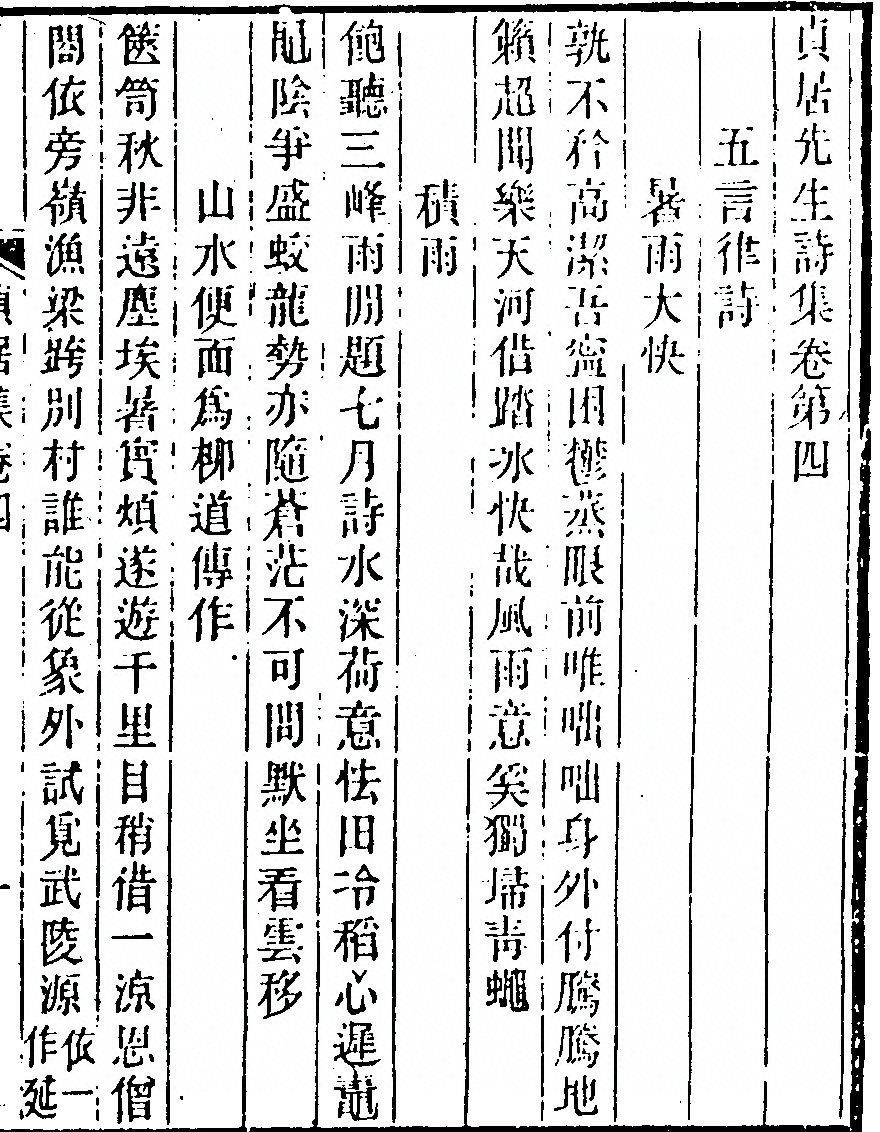 貞居先生詩集卷第四
五言律詩
暑雨大快
孰不矜高潔吾寧困鬱蒸眼前唯咄咄身外付騰騰地
籟起聞樂天河借踏冰快哉風雨意奚獨埽青蠅
積雨
飽聽三峰雨閒題七月詩水深荷意怯田冷稻心遲
陰爭盛蛟龍勢亦隨蒼茫不可問默坐看雲移
山水便面爲柳道傳作
篋笥秋非遠塵埃暑實煩遂遊千里目稍借一凉恩僧
閣依旁嶺漁梁跨別村誰能從象外試覓武陵源依一作延
貞居集卷四
一